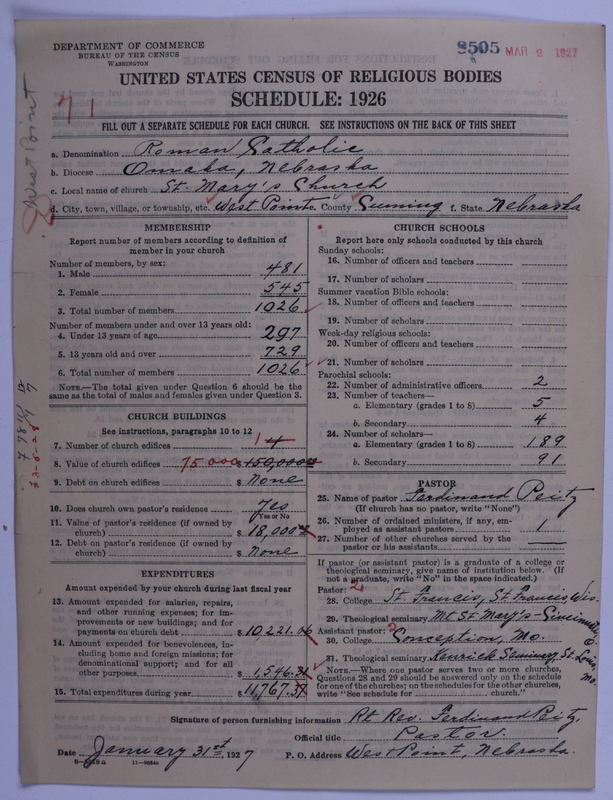 DEPARTMENT OF COMMERCE
BUREAU OF THE CENSUS
WASHINGTON
8505 MAR 2 1927
UNITED STATES CENSUS OF RELIGIOUS BODIES
SCHEDULE: 1926
71
West Point
FILL OUT A SEPARATE SCHEDULE FOR EACH CHURCH. SEE INSTRUCTIONS ON THE BACK OF THIS SHEET
a. Denomination Roman Catholic
b. Diocese Omaha, Nebraska
c. Local name of church St. Mary's Church
d. City, town, village, or township, etc. West Point e. County Cuming f. State Nebraska
MEMBERSHIP
Report number of members according to definition of
member in your church
Number of members, by sex:
1. Male 481
2. Female 545
3. Total number of members 1026
Number of members under and over 13 years old:
4. Under 13 years of age 297
5. 13 years old and over 729
6. Total number of members 1026
NOTE.—The total given under Question 6 should be
same as the total of males and females given under Question 3.
CHURCH BUILDINGS
See instructions, paragraphs 10 to 12
7. Number of church edifices 1 4
8. Value of church edifices 75000 $ 150,000
9. Debt on church edifices $ None
10. Does church own pastor's residence Yes
Yes or No
11. Value of pastor's residence (if owned by
church) $ 18,000
12. Debt on pastor's residence (if owned by
church) $ None
EXPENDITURES
Amount expended by your church during last fiscal year
13. Amount expended for salaries, repairs,
and other running expenses; for im-
provements or new buildings; and for
payments on church debt $ 10,221.06
14. Amount expended for benevolences, in-
cluding home and foreign missions; for
denominational support; and for all
other purposes $ 1,546.31
15. Total expenditures during year $ 11,767.37
CHURCH SCHOOLS
Report here only schools conducted by this church
Sunday schools:
16. Number of officers and teachers
17. Number of scholars
Summer vacation Bible schools:
18. Number of officers and teachers
19. Number of scholars
Week-day religious schools:
20. Number of officers and teachers
21. Number of scholars
Parochial schools:
22. Number of administrative officers 2
23. Number of teachers—
a. Elementary (grades 1 to 8) 5
b. Secondary 4
24. Number of scholars—
a. Elementary (grades 1 to 8) 189
b. Secondary 91
PASTOR
25. Name of pastor Ferdinand Peitz
(If church has no pastor, write "None")
26. Number of ordained ministers, if any, em-
ployed as assistant pastors 1
27. Number of other churches served by the
pastor or his assistants —
If pastor (or assistant pastor) is a graduate of a college or
theological seminary, give name of institution below. (If
not a graduate, write "No" in the space indicated.)
Pastor: 2
28. College St. Francis, St. Francis, Wis.
29. Theological seminary Mt St Mary's-Cincinnati, O.
Assistant pastor:
30. College Conception, Mo.
31. Theological seminary Kenrick Seminary, St. Louis, Mo.
NOTE.—Where one pastor serves two or more churches,
Questions 28 and 29 should be answered only on the schedule
for one of the churches; on the schedules for the other churches,
write "See schedule for church."
Signature of person furnishing information Rt. Rev. Ferdinand Peitz,
Official title Pastor.
Date January 31st, 1927 P. O. Address West Point, Nebraska.